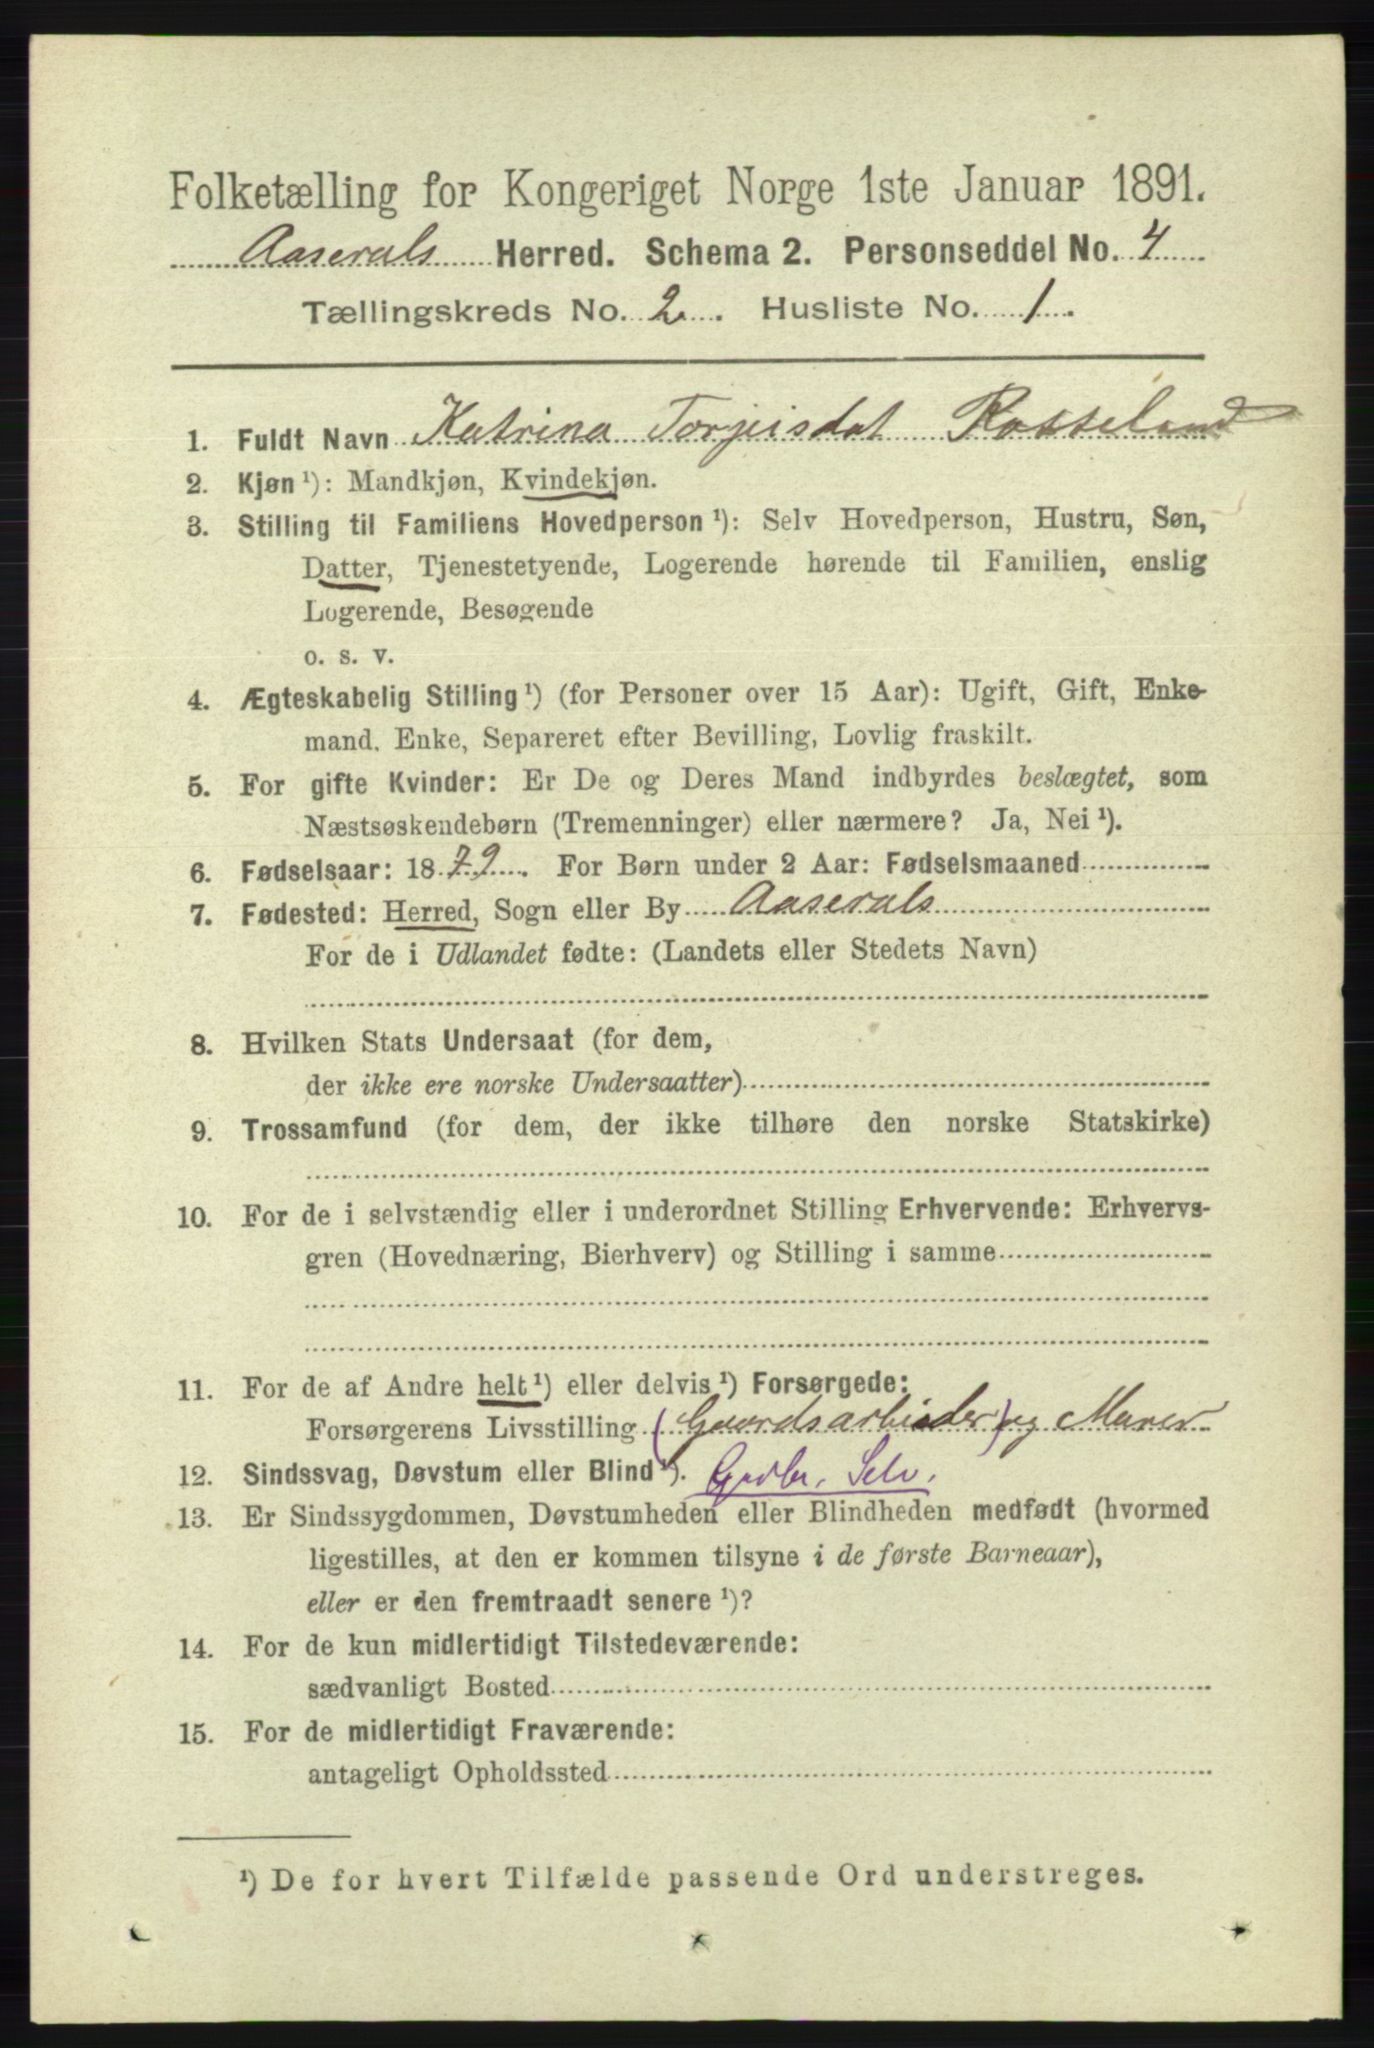 Folketælling for Kongeriget Norge 1ste Januar 1891.
Aaserals Herred. Schema 2. Personseddel No. 4
Tællingskreds No. 2. Husliste No. 1.
1. Fuldt Navn Katrina Torjeisdat Rosseland
2. Kjøn ¹): Mandkjøn, Kvindekjøn.
3. Stilling til Familiens Hovedperson ¹): Selv Hovedperson, Hustru, Søn,
Datter, Tjenestetyende, Logerende hørende til Familien, enslig
Logerende, Besøgende
o. s. v.
4. Ægteskabelig Stilling ¹) (for Personer over 15 Aar): Ugift, Gift, Enke-
mand, Enke, Separeret efter Bevilling, Lovlig fraskilt.
5. For gifte Kvinder: Er De og Deres Mand indbyrdes beslægtet, som
Næstsøskendebørn (Tremenninger) eller nærmere? Ja, Nei ¹).
6. Fødselsaar: 1879. For Børn under 2 Aar: Fødselsmaaned
7. Fødested: Herred, Sogn eller By Aaserals
For de i Udlandet fødte: (Landets eller Stedets Navn)
8. Hvilken Stats Undersaat (for dem,
der ikke ere norske Undersaatter)
9. Trossamfund (for dem, der ikke tilhøre den norske Statskirke)
10. For de i selvstændig eller i underordnet Stilling Erhvervende: Erhvervs-
gren (Hovednæring, Bierhverv) og Stilling i samme
11. For de af Andre helt ¹) eller delvis ¹) Forsørgede:
Forsørgerens Livsstilling (Gaardsarbieder) og Murer
12. Sindssvag, Døvstum eller Blind ¹). Grdbr. Selv.
13. Er Sindssygdommen, Døvstumheden eller Blindheden medfødt (hvormed
ligestilles, at den er kommen tilsyne i de første Barneaar),
eller er den fremtraadt senere ¹)?
14. For de kun midlertidigt Tilstedeværende:
sædvanligt Bosted
15. For de midlertidigt Fraværende:
antageligt Opholdssted
¹) De for hvert Tilfælde passende Ord understreges.